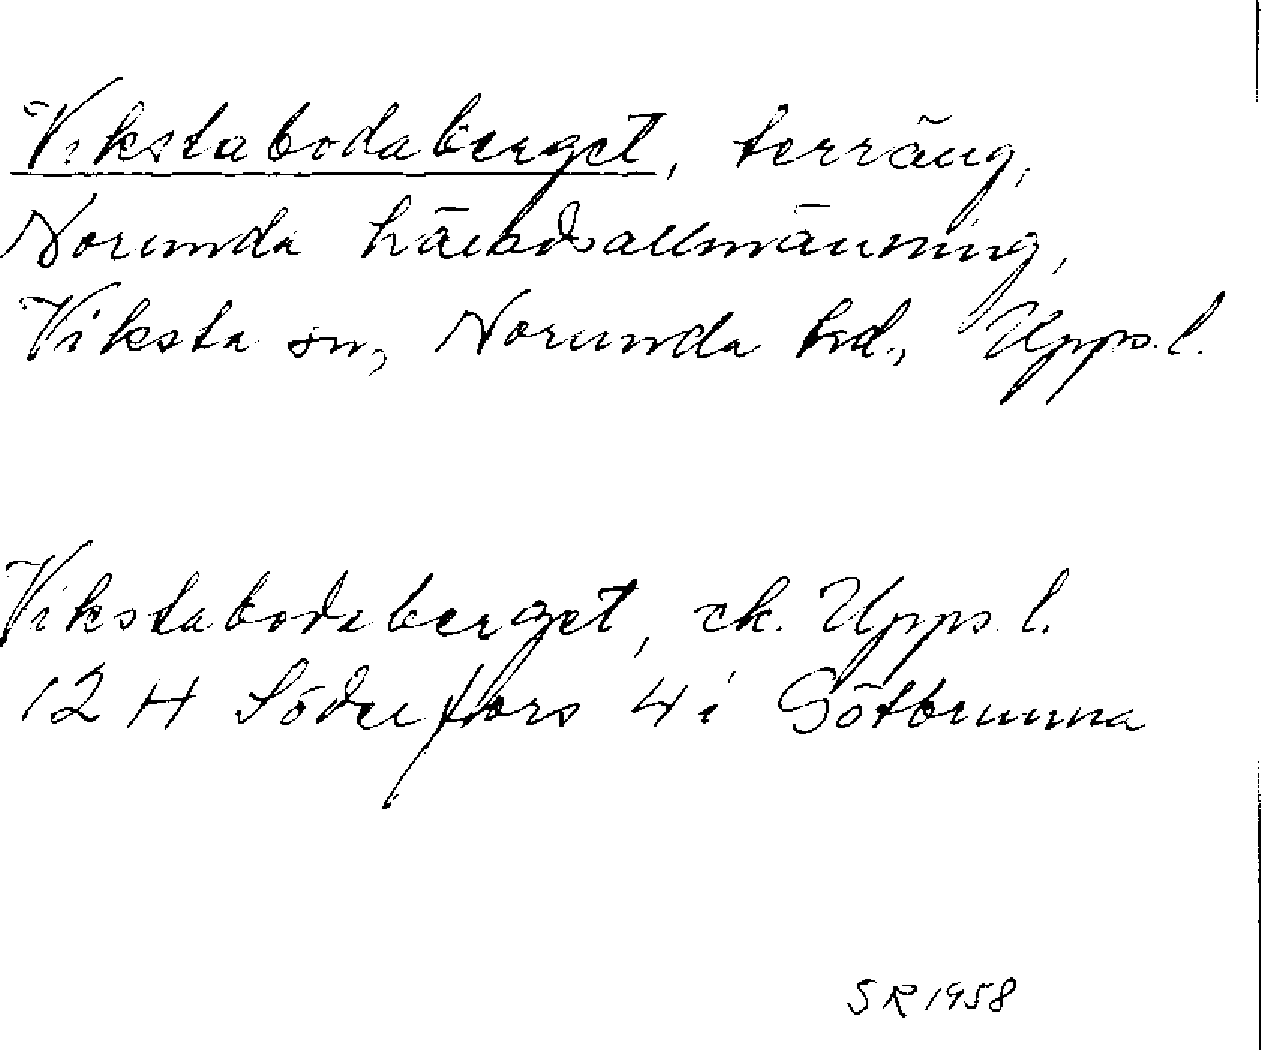 Vikstabodaberget, terräng,
Norunda häradsallmänning,
Viksta sn, Norunda hd., Uppl.
Vikstabodaberget, ek. Uppl.
12 H Söderfors 4 i Götbrunna
SR 1958